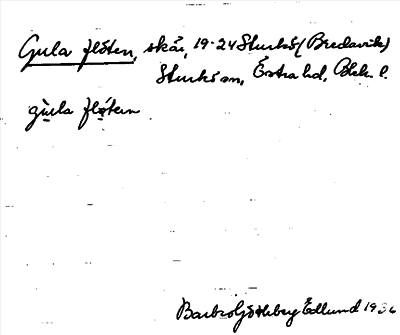 Gula flöten, skär, 19-24 Sturkö (Bredavik)
Sturkö sn, Östra hd, Blek. l.
gula flöten
Barbro Götleborg Edlund 1936